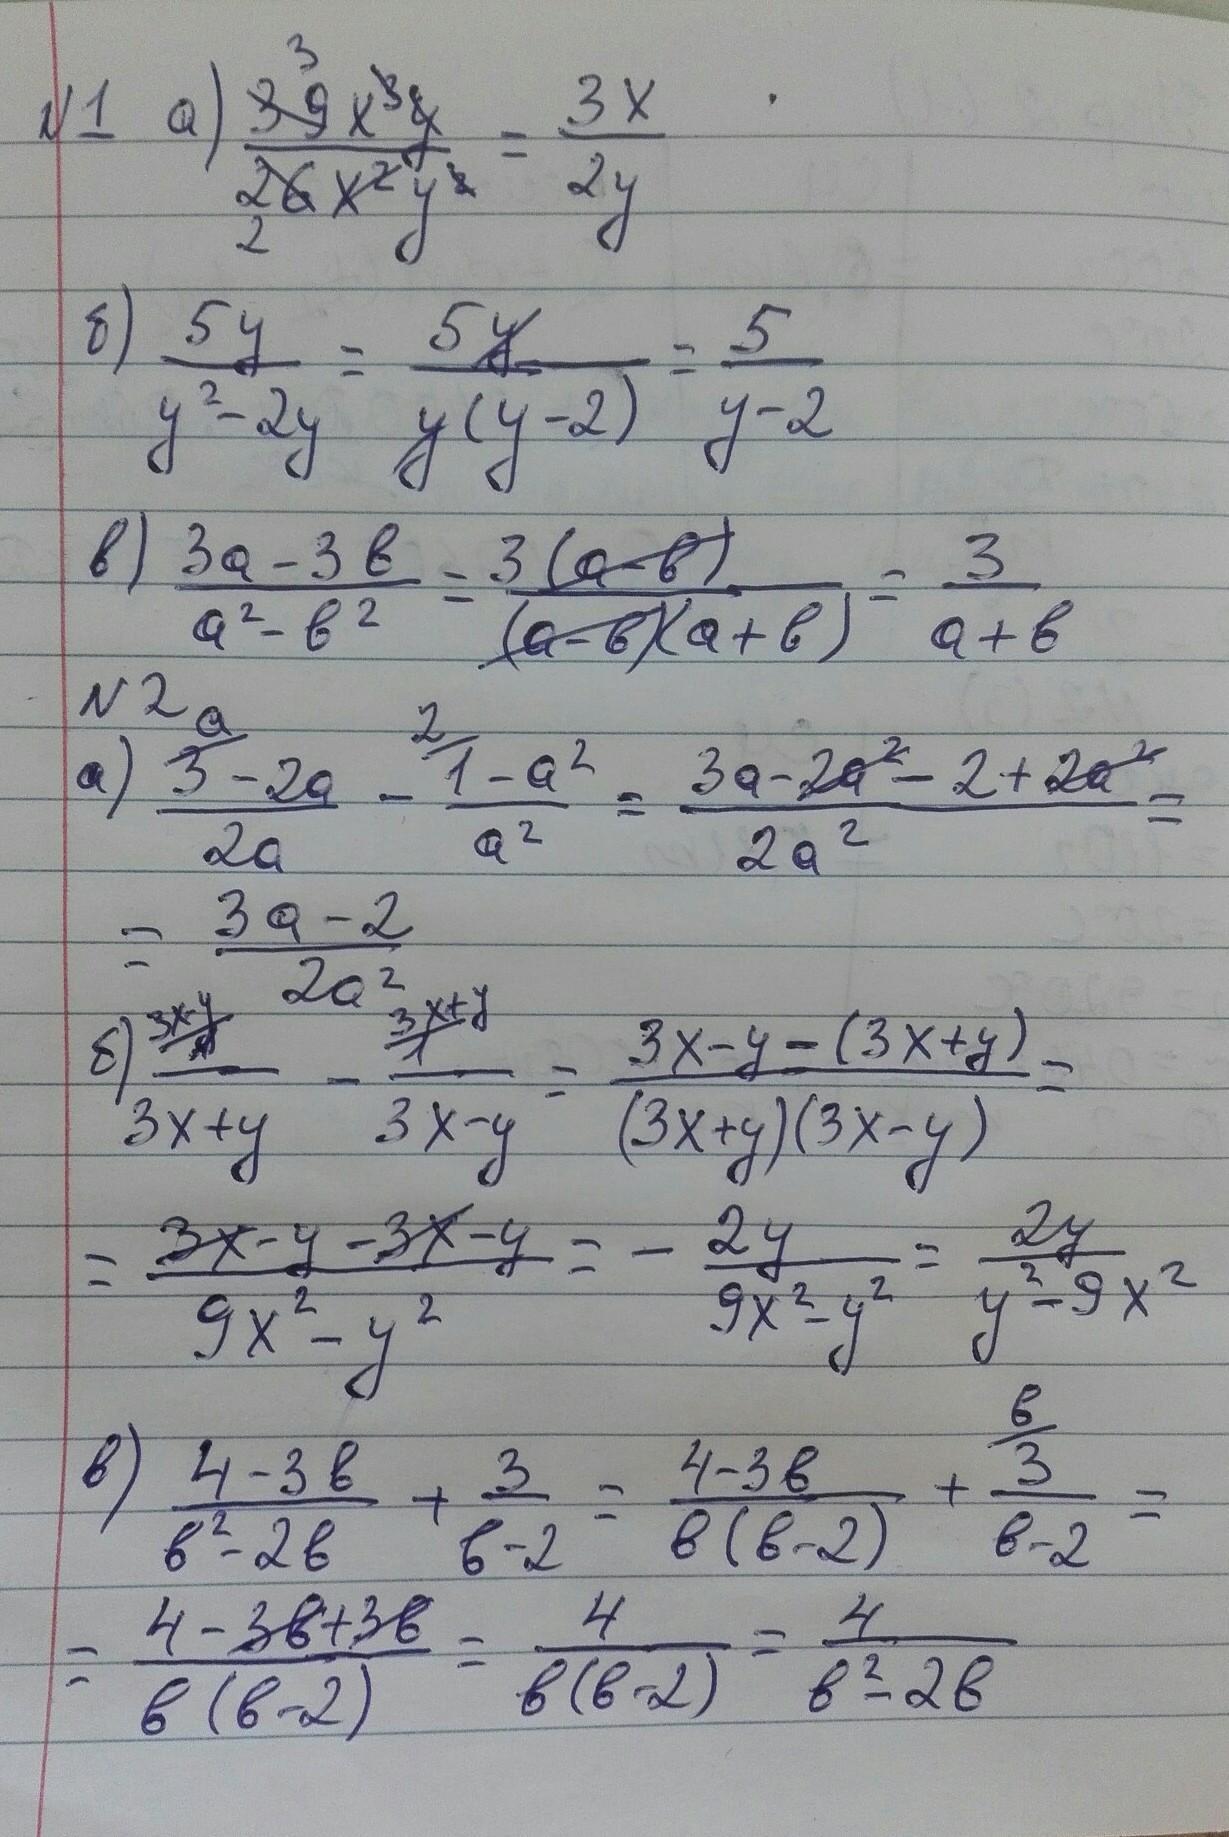 №1 а) 39x³y/26x²y² = 3x/2y
б) 5y/y²-2y = 5y/y(y-2) = 5/y-2
в) 3a-3b/a²-b² = 3(a-b)/(a-b)(a+b) = 3/a+b
№2
а) 3-2a/2a - 1-a²/a² = 3a-2a²-2+2a²/2a² =
= 3a-2/2a²
б) 1/3x+y - 1/3x-y = 3x-y-(3x+y)/(3x+y)(3x-y) =
= 3x-y-3x-y/9x²-y² = - 2y/9x²-y² = 2y/y²-9x²
в) 4-3b/b²-2b + 3/b-2 = 4-3b/b(b-2) + 3/b-2 =
= 4-3b+3b/b(b-2) = 4/b(b-2) = 4/b²-2b